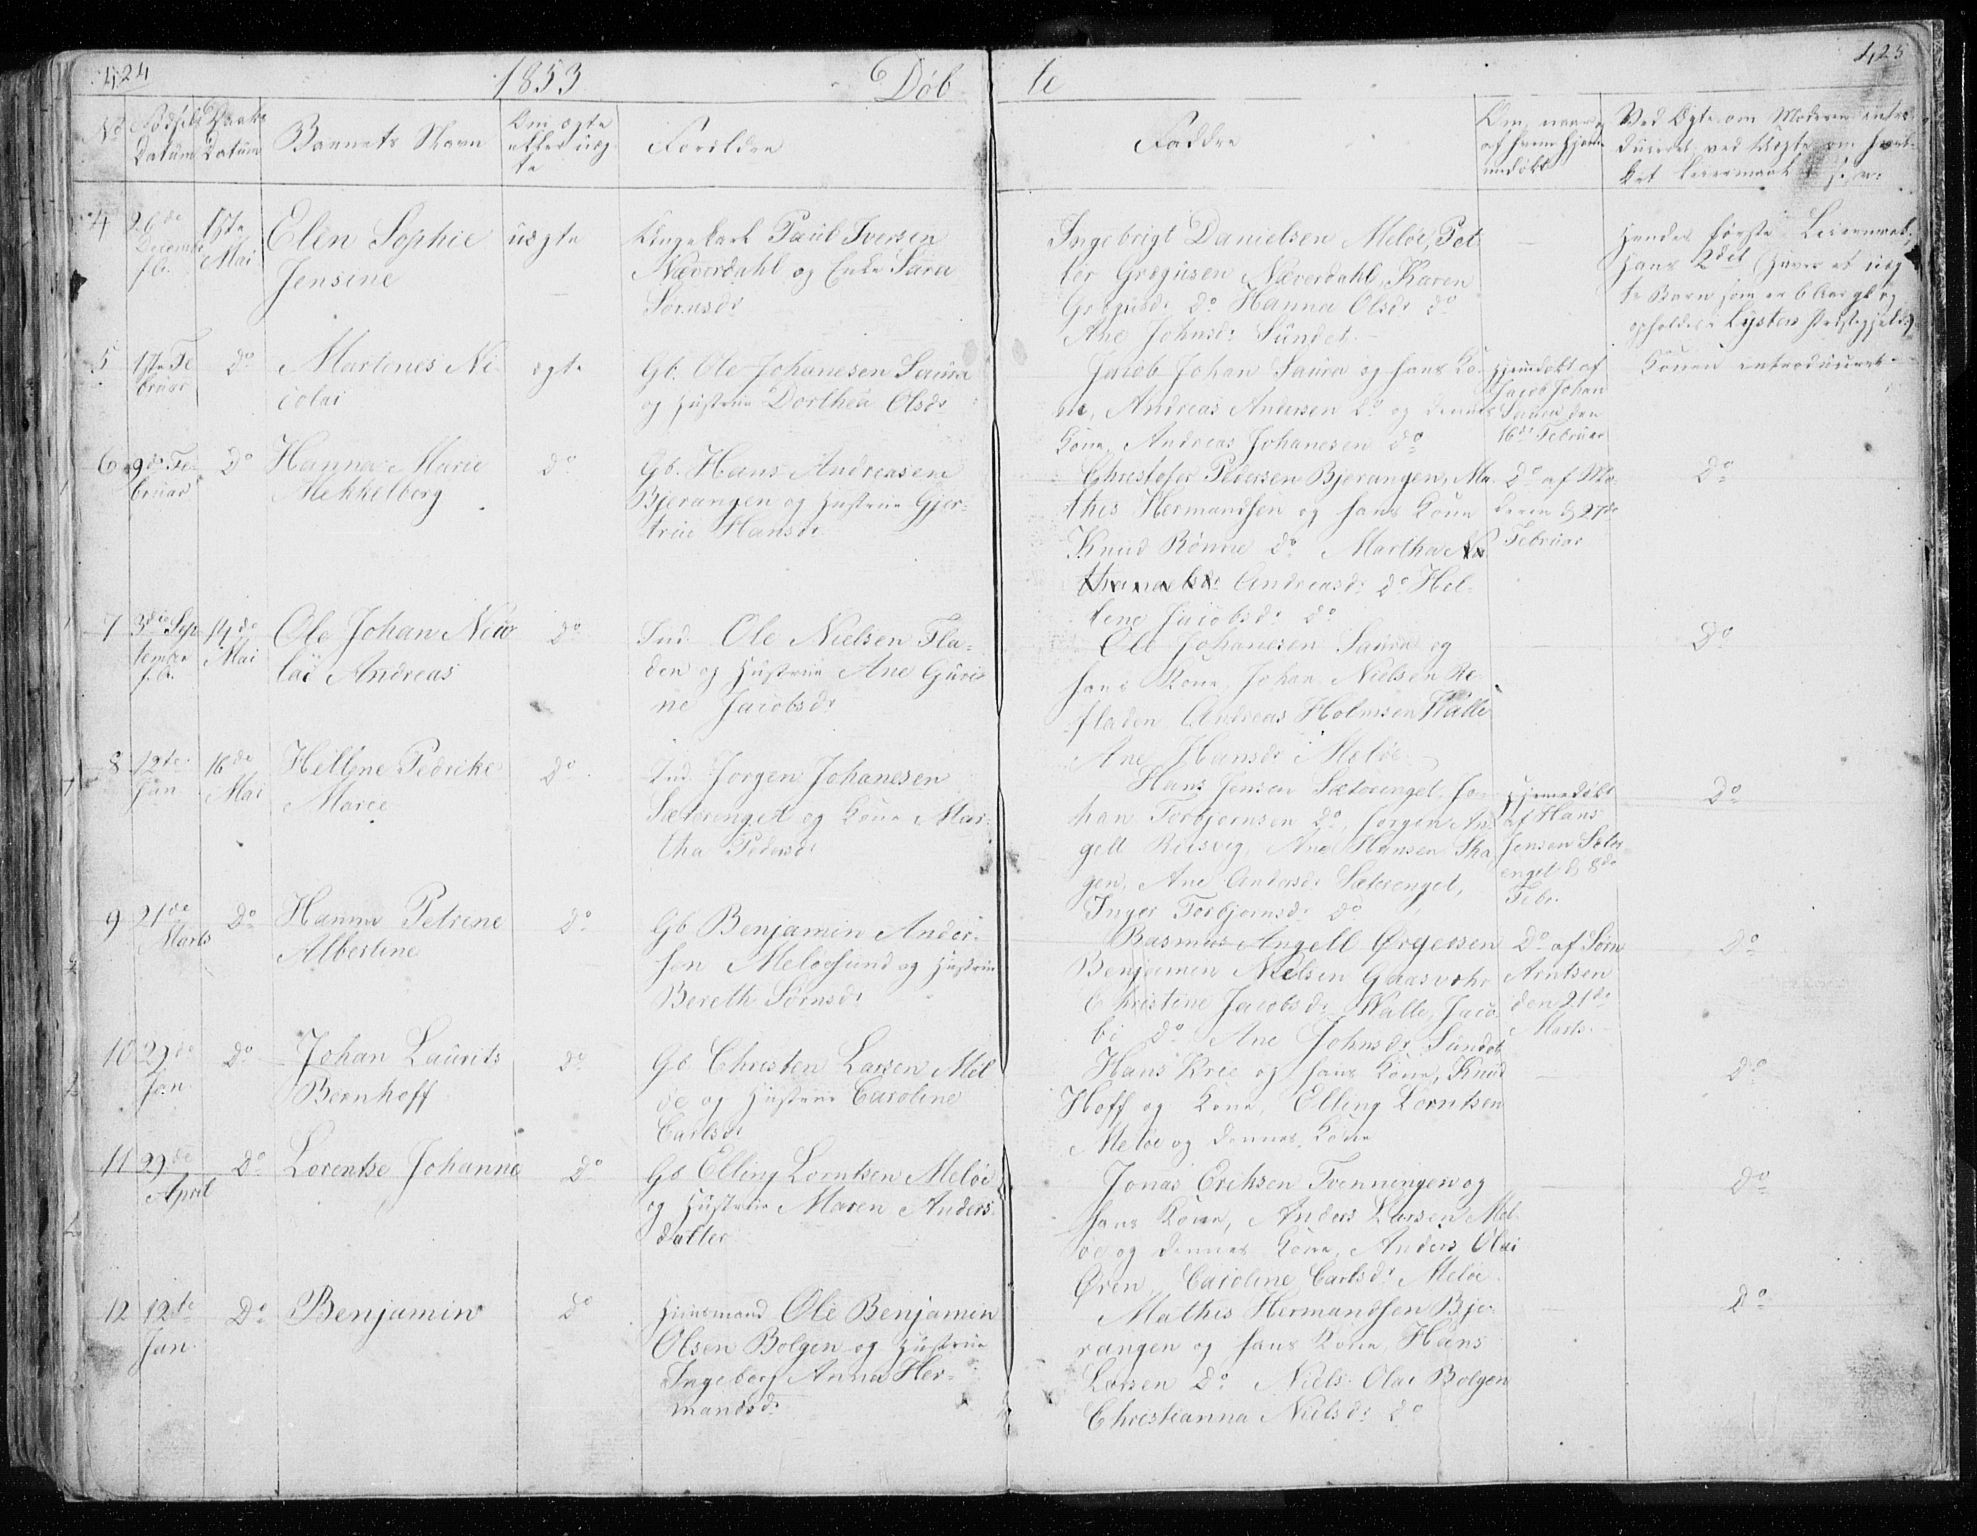 424
1853
Døb
te
425
No
Fødsels Datum
Daabs Datum
Barnets Navn
Om ægte eller uægte
Forældre
Faddre
Om, naar og af hvem hjemmedøbt
Ved Ægte om Moderen introduceret ved Uægte om hvilket Leiermaal
4
26de Decembr f. A.
1ste Mai
Elen Sophie
Jensine
uægte
Ungekarl Paul Iversen
Næverdahl og Enke Sara
Sørnsdr
Ingebrigt Danielsen Meløe, Pet
ter Gregusen Næverdahl, Karen
Gregusdr do Hanna Olsdr do
Ane Johnsdr Sundet
Hendes første Leiermaal,
Hans 2det (haver et uæg
te Barn som er 6 Aar gl og
opholdes i Lysters Præstegjeld)
5
1ste Fe
bruar
Do
Martines Ni
colai
ægte
Gb. Ole Johanesen Saura
og Hustrue Dorthea Olsdr
Jacob Johan Saura og hans Ko
ne, Andreas Andersen do og dennes
Kone, Andreas Johanesen do
Hjemdøbt af
Jacob Johan
Saura den
16de Februar
Konen introduceret
6
9de Fe
bruar
Do
Hanna Marie
Mekkelborg
Do
Gb. Hans Andreasen
Bjerangen og Hustrue Gjer
true Hansdr
Christofer Pedersen Bjerangen, Ma
this Hermandsen og hans Kone
Knud Rønne do Martha
Andreasdr do Hel
lene Jacobsdr do
Do af Mo
deren d 27de
Februar
Do
7
3die Sep
tember
f. A.
14de
Mai
Ole Johan Nico
lai Andreas
Do
Ind. Ole Nielsen Fla
den og Hustrue Ane Guri
ne Jacobsdr
Ole Johanesen Saura og
hans Kone, Johan Nielsen Re
fladen Andreas Holmsen Walle
Ane Hansdr Meløe
Do
8
12te
Jan
16de
Mai
Hellene Pedrike
Marie
Do
Ind. Jørgen Johanesen
Sæterenget og Kone Mar
tha Pedersdr
Hans Jensen Sæterenget, Jo
han Torbjørnsen do, Jørgen An
gell Reisvig, Ane Hansen Ska
gen, Ane Andersdr Sæterenget,
Inger Torbjørnsdr do
Hjemmedøbt
af Hans
Jensen Sæter
enget d 8de
Febr.
Do
9
21de
Marts
Do
Hanna Petrine
Albertine
Do
Gb Benjamin Ander
sen Meløesund og Hustrue
Bereth Sørnsdr
Rasmus Angell Ørgessen
Benjamin Nielsen Gaasvær
Christine Jacobsdr Walle, Jaco
bi do Ane Johnsdr Sundet
Do af Sørn
Arntsen
den 21de
Marts
Do
10
29de
Jan
Do
Johan Laurits
Bernhoff
Do
Gb Christen Larsen Mel
øe og Hustrue Caroline
Carlsdr
Hans Kree og hans Kone, Knud
Hoff og Kone, Elling Lorntsen
Meløe og dennes Kone
Do
11
29de
April
Do
Lorentse Johanna
Do
Gb Elling Lorntsen Meløe
og Hustrue Maren Anders
datter
Jonas Eriksen Tvenningen og
hans Kone, Anders Larsen Mel
øe og dennes Kone, Anders Olai
Øren, Caroline Carlsdr Meløe
Do
12
12te
Jan
Do
Benjamin
Do
Huusmand Ole Benjamin
Olsen Bolgen og Hustrue
Ingeborg Anna Her
mandsdr
Mathis Hermandsen Bje
rangen og hans Kone, Hans
Larsen do Niels Olai Bolgen
Christianna Nielsdr do
Do